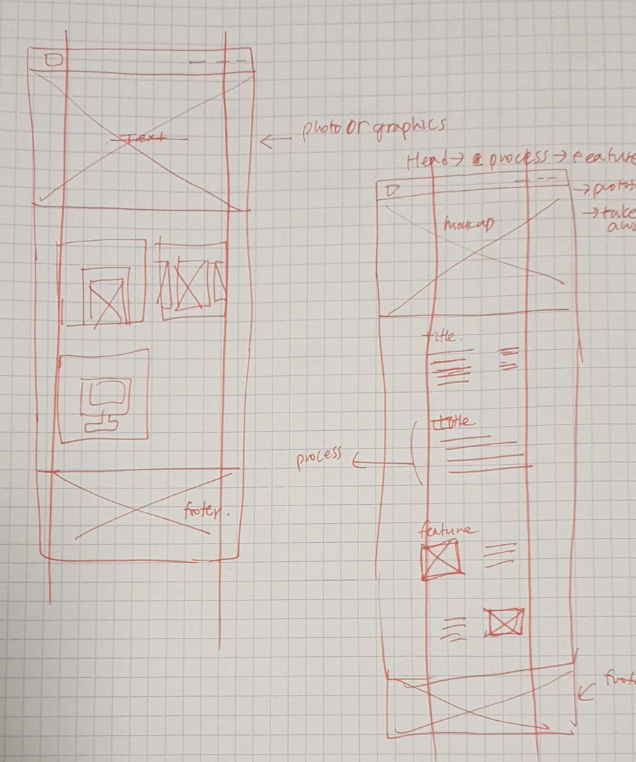 Text
photo or graphics
Head → process → feature
→ take
awa
mockup
title.
title
process
feature
footer.